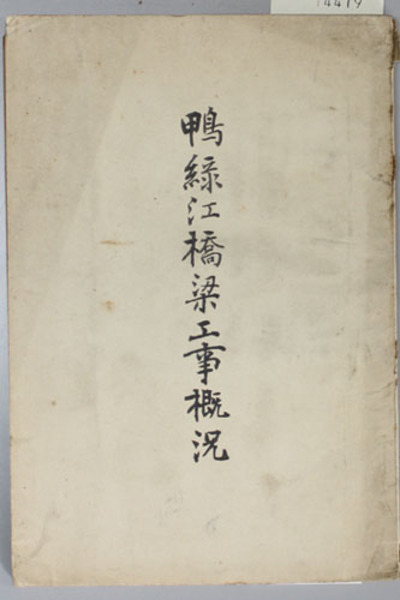 鴨綠江橋梁工事概況